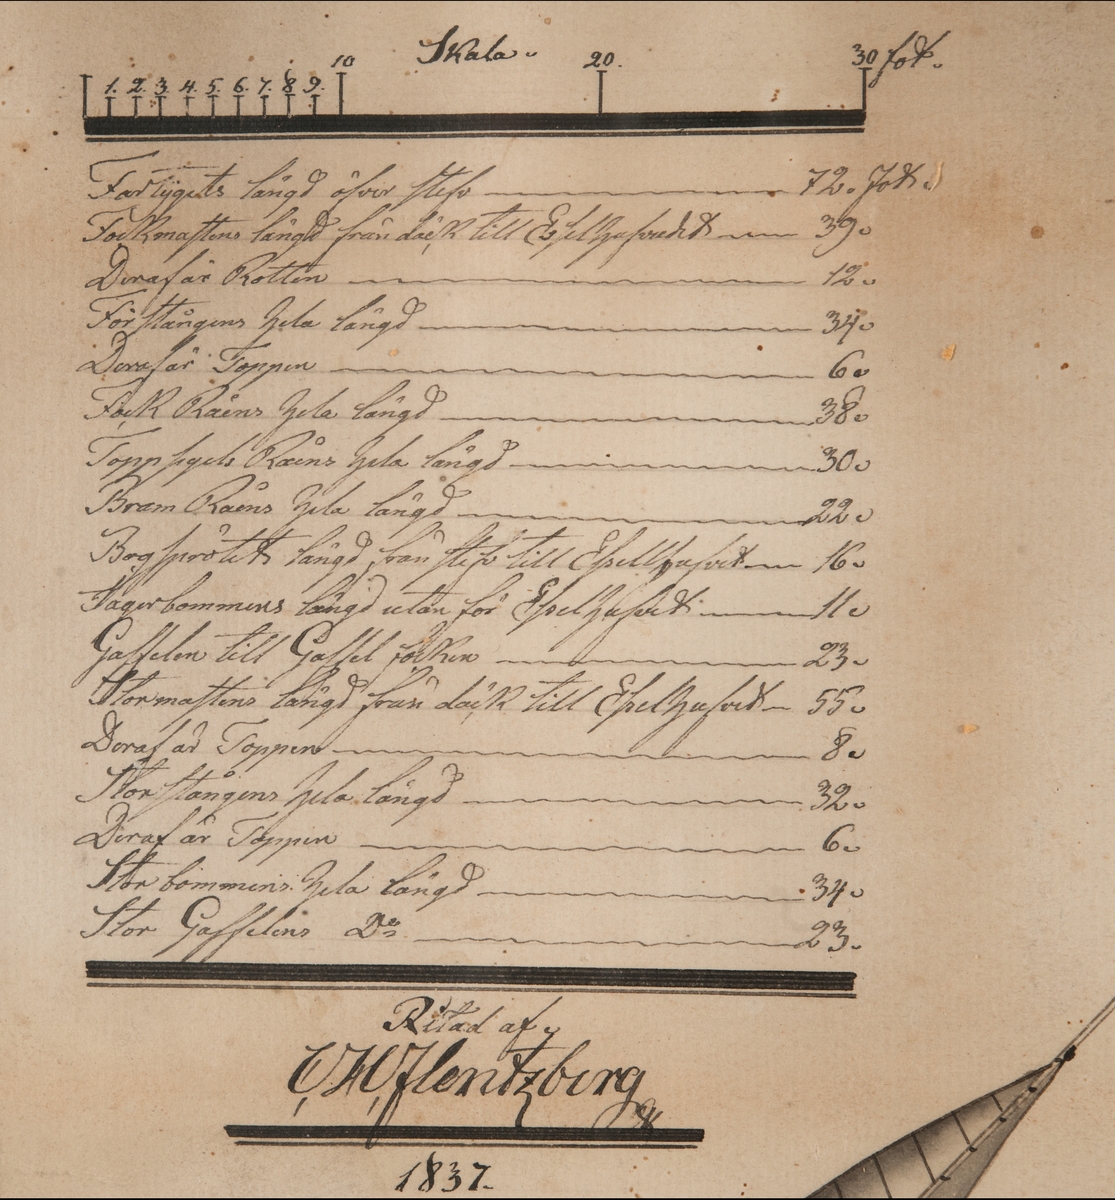 Skala.
1. 2. 3. 4. 5. 6. 7. 8. 9. 10 20. 30 fot.
Fartygets längd öfver stäfv 72. Fot.
Fockmastens längd från däck till Eselhufvudet 39.
Deraf är Rotten 12.
Förstångens hela längd 34.
Deraf är Toppen 6.
Fock Råens hela längd 38.
Toppsegels Råens hela längd 30.
Bram Råens hela längd 22.
Bogsprötets längd från stäfv till Eselhufvet 16.
Jagerbommens längd utan för Eselhufvet 11.
Gaffelen till Gaffel focken 23.
Stormastens längd från däck till Eselhufvet 55.
Deraf är Toppen 8.
Storstångens hela längd 32.
Deraf är Toppen 6.
Stor bommens hela längd 34.
Stor Gaffelens Do 23.
Ritad af
C.H. Flentzberg
1837.